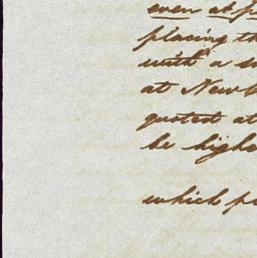 even at
placing th
with a
at New
quoted at
be highe
which p